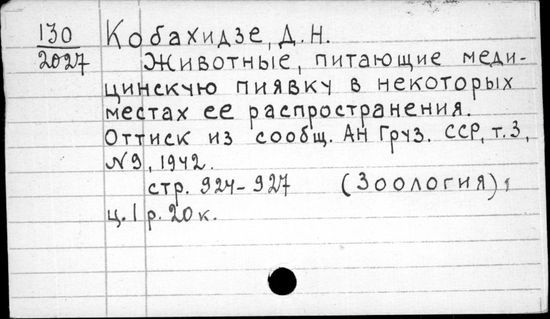 130
2027
Кобахидзе, Д. Н.
Животные, питающие меди-
цинскую пиявку в некоторых
местах ее распространения.
Оттиск из сообщ. АН Груз. ССР, т. 3,
№9, 1942.
стр. 924-927 (Зоология),
ц. 1 р. 20 к.